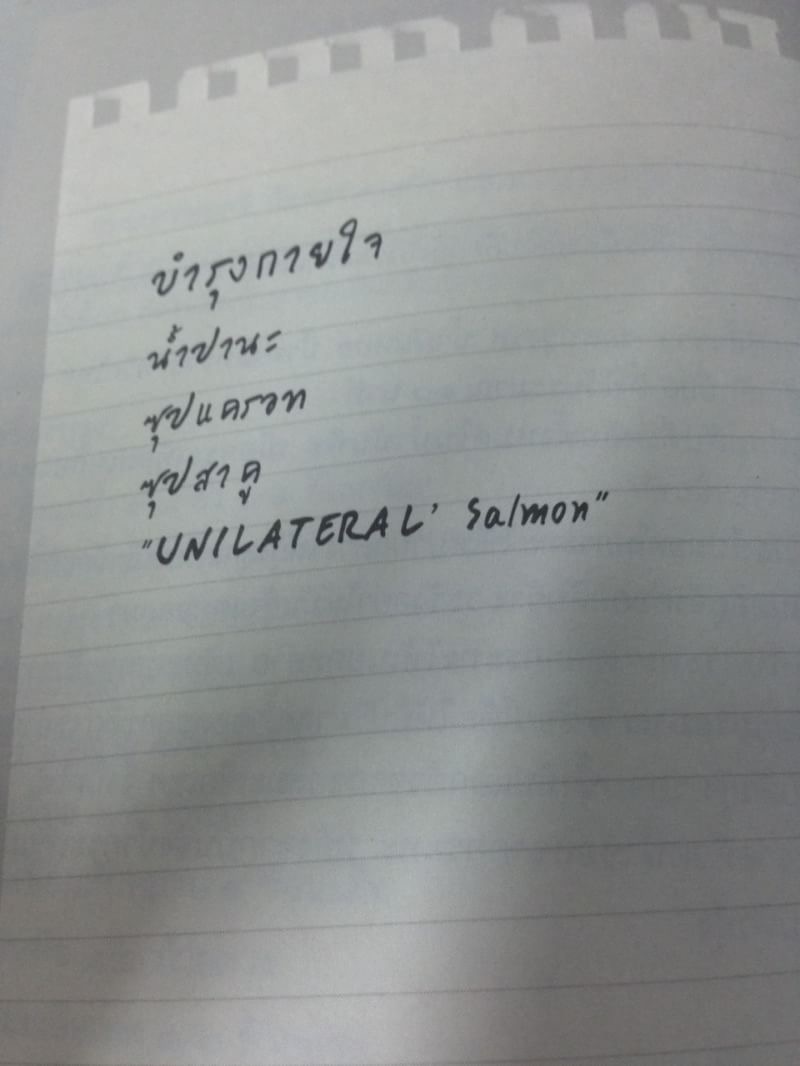 บำรุงกายใจ
น้ำปานะ
ซุปแครอท
ซุปสาคู
"UNILATERAL' Salmon"